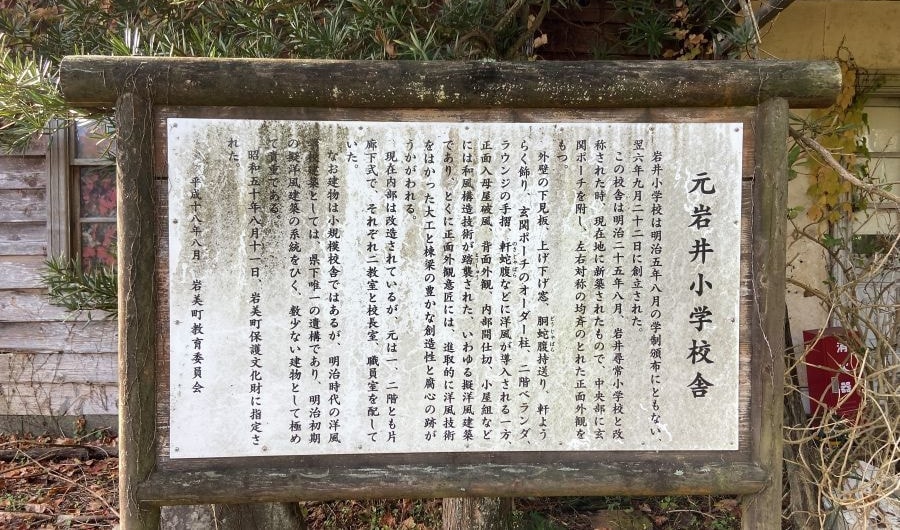 元岩井小学校舎
岩井小学校は明治五年八月の学制頒布にともない、
翌六年九月二十二日に創立された。
この校舎は明治二十五年八月、岩井尋常小学校と改
称された時、現在地に新築されたもので、中央部に玄
関ポーチを附し、左右対称の均斉のとれた正面外観を
もつ。
外壁の下見板、上げ下げ窓、胴蛇腹持送り、軒よう
らく飾り、玄関ポーチのオーダー柱、二階ベランダ、
ラウンジの手摺、軒蛇腹などに洋風が導入される一方、
正面入母屋破風、背面外観、内部間仕切、小屋組など
には和風構造技術が踏襲された、いわゆる擬洋風建築
であり、とくに正面外観意匠には、進取的に洋風技術
をはかった大工と棟梁の豊かな創造性と腐心の跡が
うかがわれる。
現在内部は改造されているが、元は一、二階とも片
廊下式で、それぞれ二教室と校長室、職員室を配して
いた。
なお建物は小規模校舎ではあるが、明治時代の洋風
学校建築としては、県下唯一の遺構であり、明治初期
の擬洋風建築の系統をひく、数少ない建物として極め
て貴重である。
昭和五十年八月十一日、岩美町保護文化財に指定さ
れた。
平成十八年八月 岩美町教育委員会
消